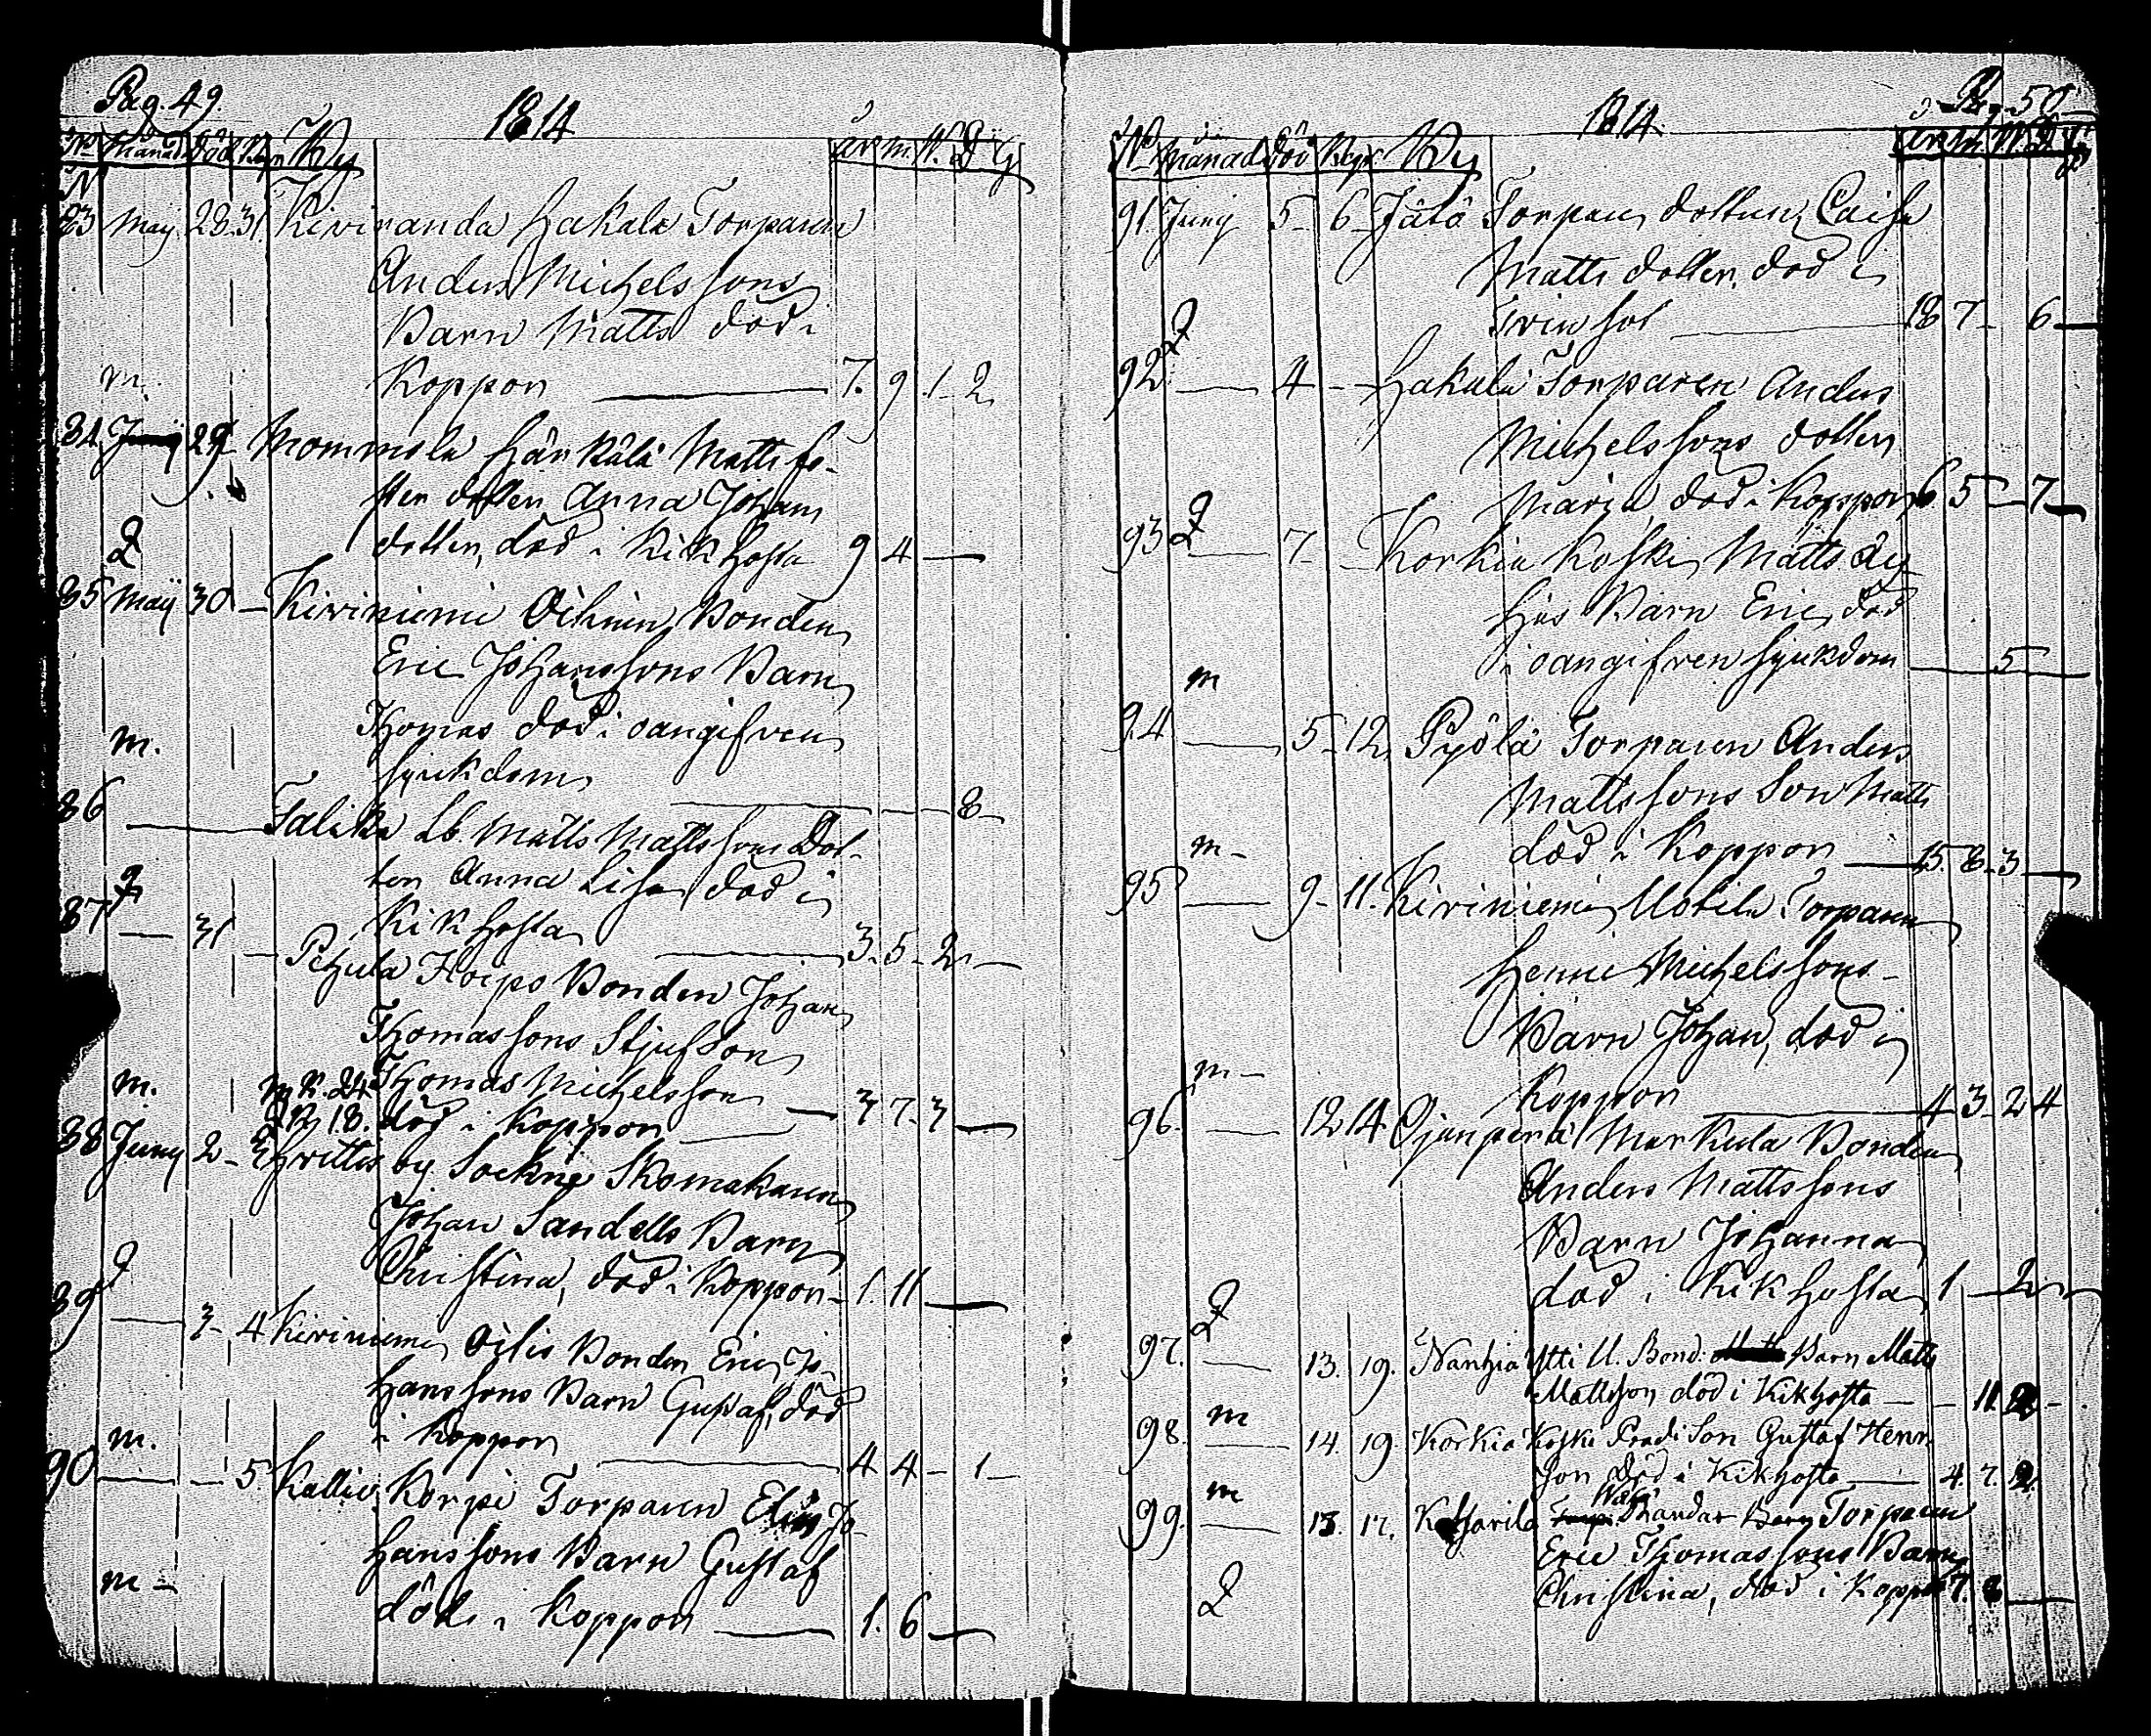 Pag. 49.
1814
No Månad död Begr By år m. W. D
83 Maij 28. 31. Kiviranda Hakala Torparen
Anders Michelssons
Barn Matts död i
m. Koppon 7. 9 1 2
84 29 Mommola Härkälä Matts
dotter Anna Johans
dotter, död i Kikhosta 9 4
85 Maij 30 Kiviniemi Bonden
Eric Johanssons Barn
Thomas död i oangifven
m. sjukdom 8
86 Talikka Lb. Matts Mattssons Dot-
ter Anna Lisa död i
Kikhosta 3. 5 2
87 31 Pehula Korpo Bonden Johan
Thomassons Stjufson
m. Thomas Michelsson
död i Koppon 3 7 3
88 Junij 2 Sockne Skomakaren
Johan Sandells Barn
Christina, död i Koppon 1. 11
89 3 4 Kiviniemi Bonden Eric Jo-
hanssons Barn Gustaf, död
m. i Koppon 4 4 1
90 5. Kallio Korpi Torparen Elias Jo-
hanssons Barn Gustaf
m död i Koppon 1. 6
Pag. 50
1814
No Månad död Begr By År M W D
91 Junij 5 6 Jätö Torpare dottern Caisa
Matts dotter, död i
Tvinsot 18 7 6
92 4 Hakala Torparen Anders
Michelssons dotter
Maria, död i Koppon 6. 5 7
93 7 Korkia Koski, Matts
Barn Eric, död
i oangifven sjukdom 5
m
94 5 12 Pyölä Torparen Anders
Mattssons Son Matts
m död i Koppon 15. 8 3
95 9 11. Kiviniemi Torparen
Henric Michelssons
Barn Johan, död i
m Koppon 4 3 2 4
96. 12 14 Ojanperä Markula Bonden
Anders Mattssons
Barn Johanna
död i Kikhosta 1 2
97. 13. 19. Nanhia Ytti U. Bond: Barn Matts
Mattsson död i Kikhosta 11.
m
98. 14. 19. Korkia Koski Son Gustaf Henr.
son död i Kikhosta 4. 7. 2.
m
99. 13. 17. Torparen
Eric Thomassons Barn
Christina, död i Koppon 7. 8